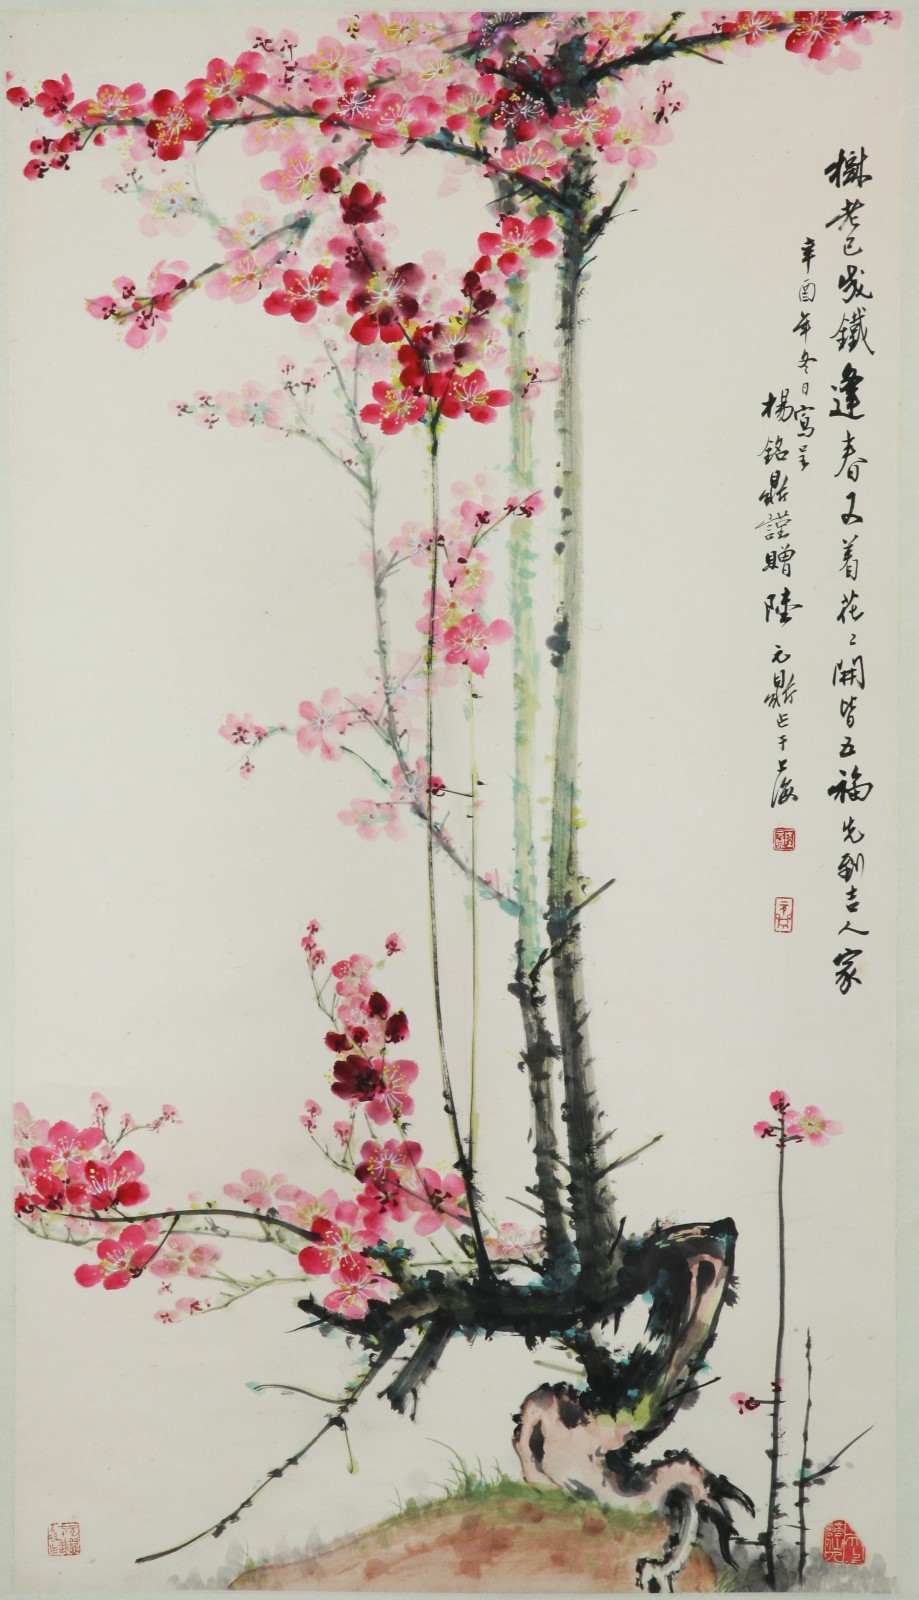 樹老已成鐵逢春又着花〻開皆五福先到吉人家
辛酉年冬日寫呈
楊銘鼎謹贈陸元鼎占于上海